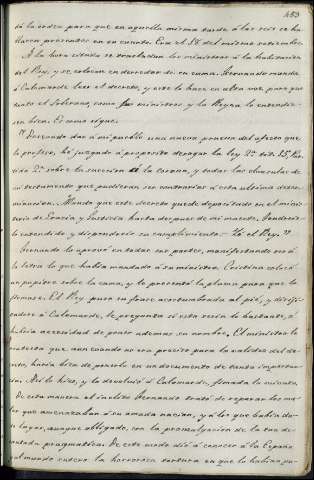 453
dó la orden para que en aquella misma tarde á las seis se ha
llasen presentes en su cuarto. Era el 18 del mismo setiembre.
A la hora citada se trasladan los ministros á la habitacion
del Rey, y se colocan en derredor de su cama. Fernando manda
á Calomarde leer el decreto, y este lo hace en alta voz, para que
tanto el Soberano como ministros y la Reyna lo entendie-
sen bien. Es como sigue.
" Deseando dar á mi pueblo una nueva prueba del afecto que
le profeso, hé juzgado á proposito derogar la ley 2ª tit. 15, Par-
tida 2ª sobre la sucesion á la corona, y todas las clausulas de
mi testamento que pudieran ser contrarias á esta ultima deter-
minacion. Mando que este decreto quede depositado en el minis-
terio de Gracia y Justicia hasta despues de mi muerte. Tendreislo
entendido, y dispondreis su cumplimiento.- Yo el Rey. "
Fernando lo aprovó en todas sus partes, manifestando era á
la letra lo que habia mandado á su ministro. Cristina colocó
un pupitre sobre la cama, y le presentó la pluma para que lo
firmase. El Rey puso su firma acostumbrada al pié, y dirijí-
endose á Calomarde, le pregunta si esta seria lo bastante, ó
habia necesidad de poner ademas su nombre. El ministro le
contesta que aun cuando no era preciso para la validez del de-
creto, habia de ponerlo en un documento de tanta importan-
cia. Asi lo hizo, y la devolvió á Calomarde, firmada la minuta.
De esta manera el inclito Fernando trató de reparar los ma-
les que amenazaban á su amada nacion, y á los que habia da-
do lugar, aunque obligado, con la promulgacion de la tan de-
cantada pragmatica. De este modo dió á conocer á la España
y al mundo entero la horrorosa tortura en que lo habian pu-